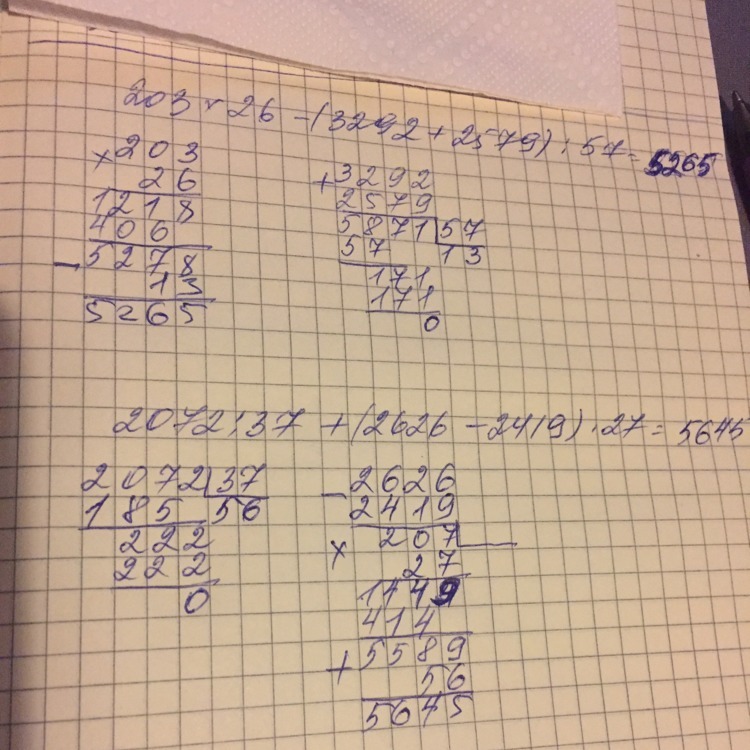 203 × 26 - (3292 + 2579) : 57 = 5265
× 203
26
1218
406
- 5278
13
5265
+ 3292
2579
5871 | 57
57 13
171
171
0
2072 : 37 + (2626 - 2419) · 27 = 5645
2072 | 37
185 56
222
222
0
- 2626
2419
207
× 27
1449
414
+ 5589
56
5645